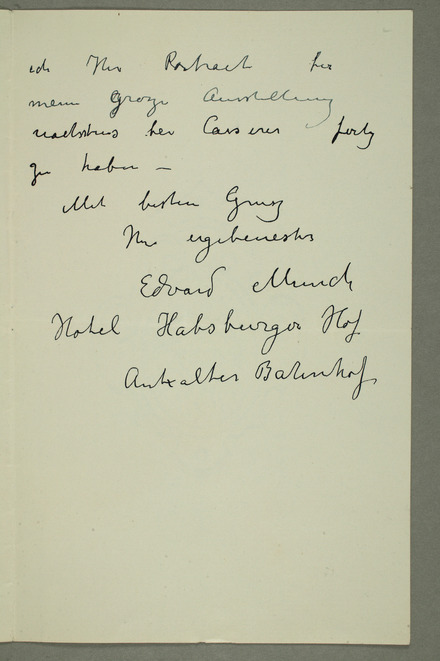 ich Ihr Portraet für
meine groze Ausstellung
nachstens bei Cassirer fertig
zu haben –
Mit besten Grusz
Ihr ergebenester
Edvard Munch
Hotel Habsburger Hof
Anhalter Bahnhof